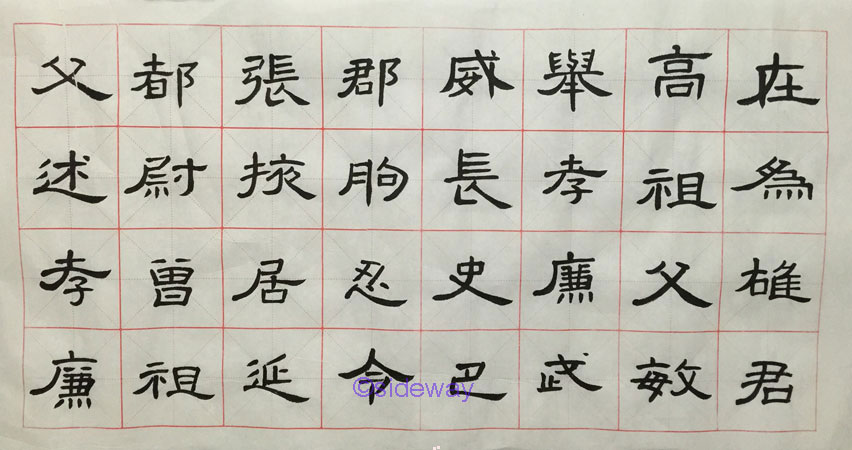 在為雄君
高祖父敏
舉孝廉武
威長史巴
郡朐忍令
張掖居延
都尉曾祖
父述孝廉
©sideway